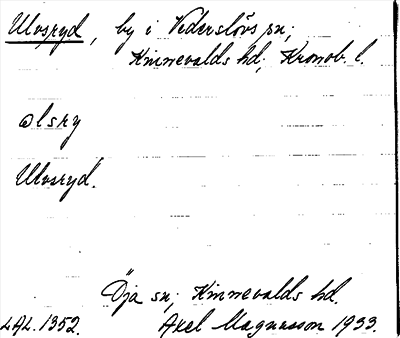 Ulvsryd, by i Vederslövs sn;
Kinnevalds hd; Kronob. l.
olsry
Ulvsryd.
Öja sn; Kinnevalds hd.
LAL. 1352. Axel Magnusson 1933.